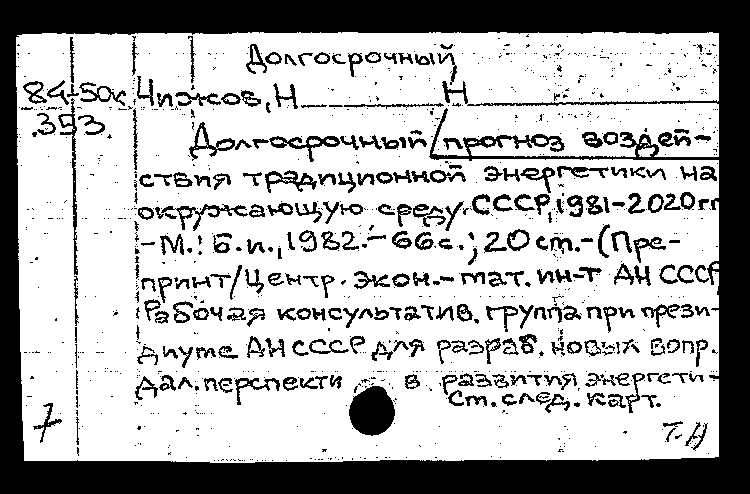 Долгосрочный
84-50к Чижов, Н Н
.353.
Долгосрочный / прогноз воздей-
ствия традиционной энергетики на
окружающую среду. СССР, 1981-2020гг
-М.: Б.и., 1982.- 66с.; 20 ст.- (Пре-
принт/Центр. экон.-мат. ин-т АН СССР,
Рабочая консультатив. группа при прези-
диуме АН СССР для разраб. новых вопр.
дал. перспекти в развития энергети-
Ст. след. карт.
7 Т-Н